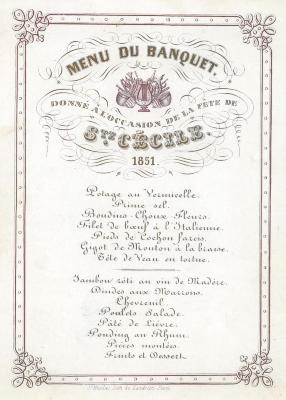 MENU DU BANQUET.
DONNÉ À L'OCCASION DE LA FÊTE DE
STE CÉCILE.
1851.
Potage au Vermicelle.
Prime sel.
Boudins-Choux Fleurs.
Filet de bœuf à l'Italienne.
Pieds de Cochon farcis.
Gigot de Mouton à la braise.
Tête de Veau en tortue.
Jambon rôti au vin de Madère.
Dindes aux Marrons.
Chevreuil.
Poulets Salade.
Pâté de Lièvre.
Pouding au Rhum.
Pièces montées.
Fruits et Dessert.
St Nicolas, Lith. de